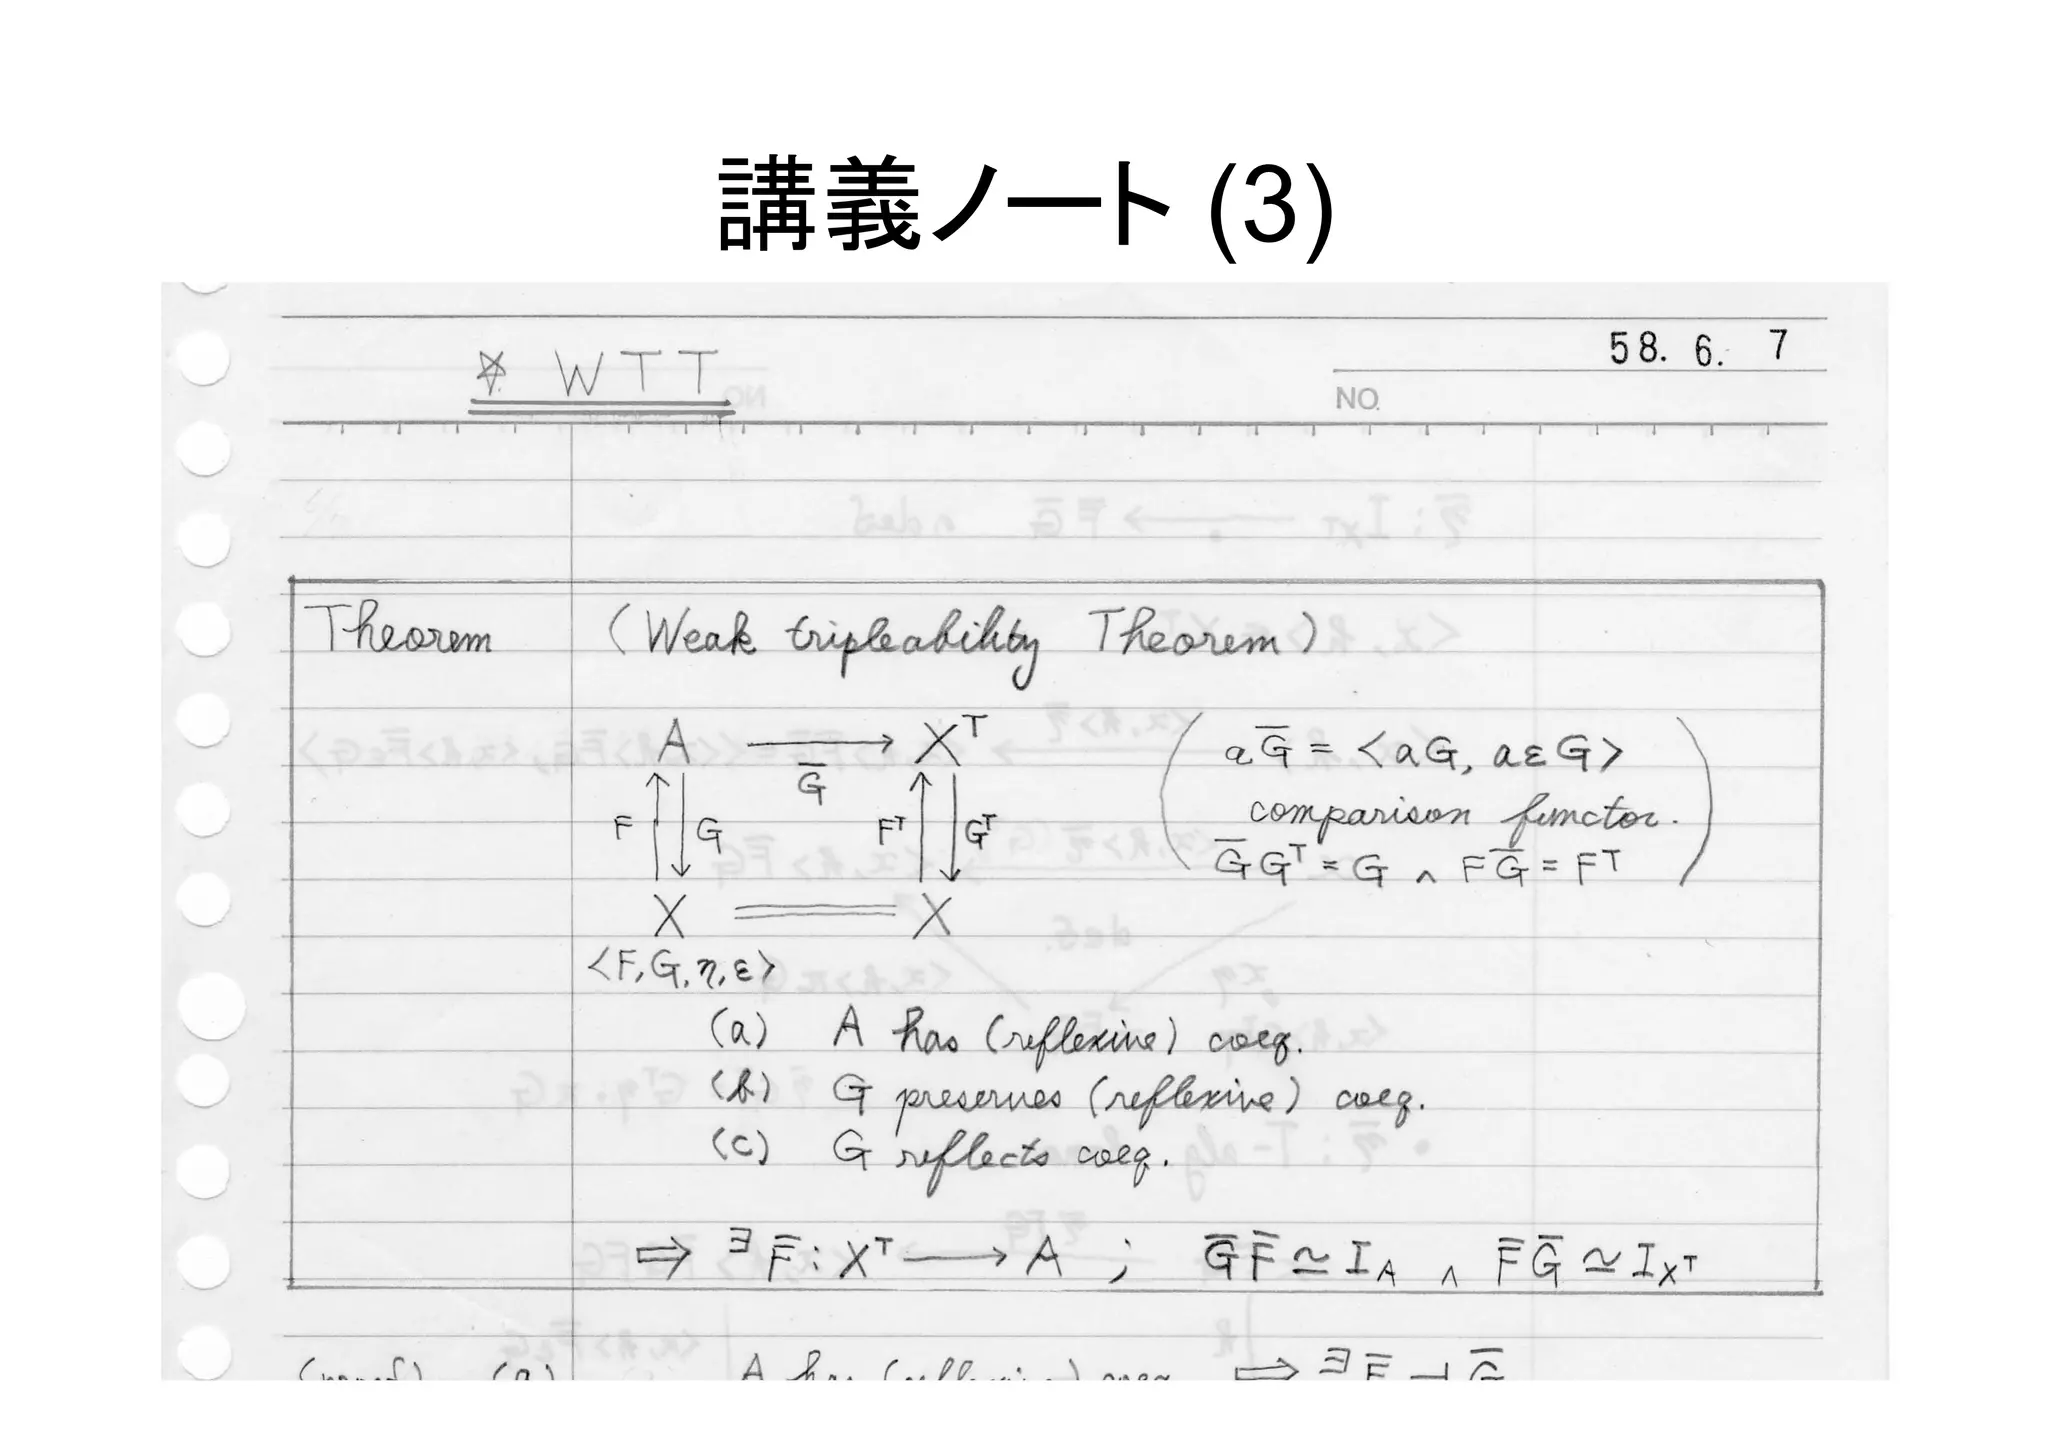 講義ノート (3)
58. 6. 7
☆ WTT
NO.
Theorem (Weak tripleability Theorem)
A → X^T
G̅
F G F^T G^T
X = X
(aG̅ = <aG, aεG>
comparison functor.
G̅G^T = G ∧ FG̅ = F^T)
<F, G, η, ε>
(a) A has (reflexive) coeq.
(b) G preserves (reflexive) coeq.
(c) G reflects coeq.
⇒ ∃F̅ : X^T → A ; G̅F̅ ≃ I_A ∧ F̅G̅ ≃ I_X^T
(proof) (a) A has (reflexive) coeq. ⇒ ∃F̅ ⊣ G̅